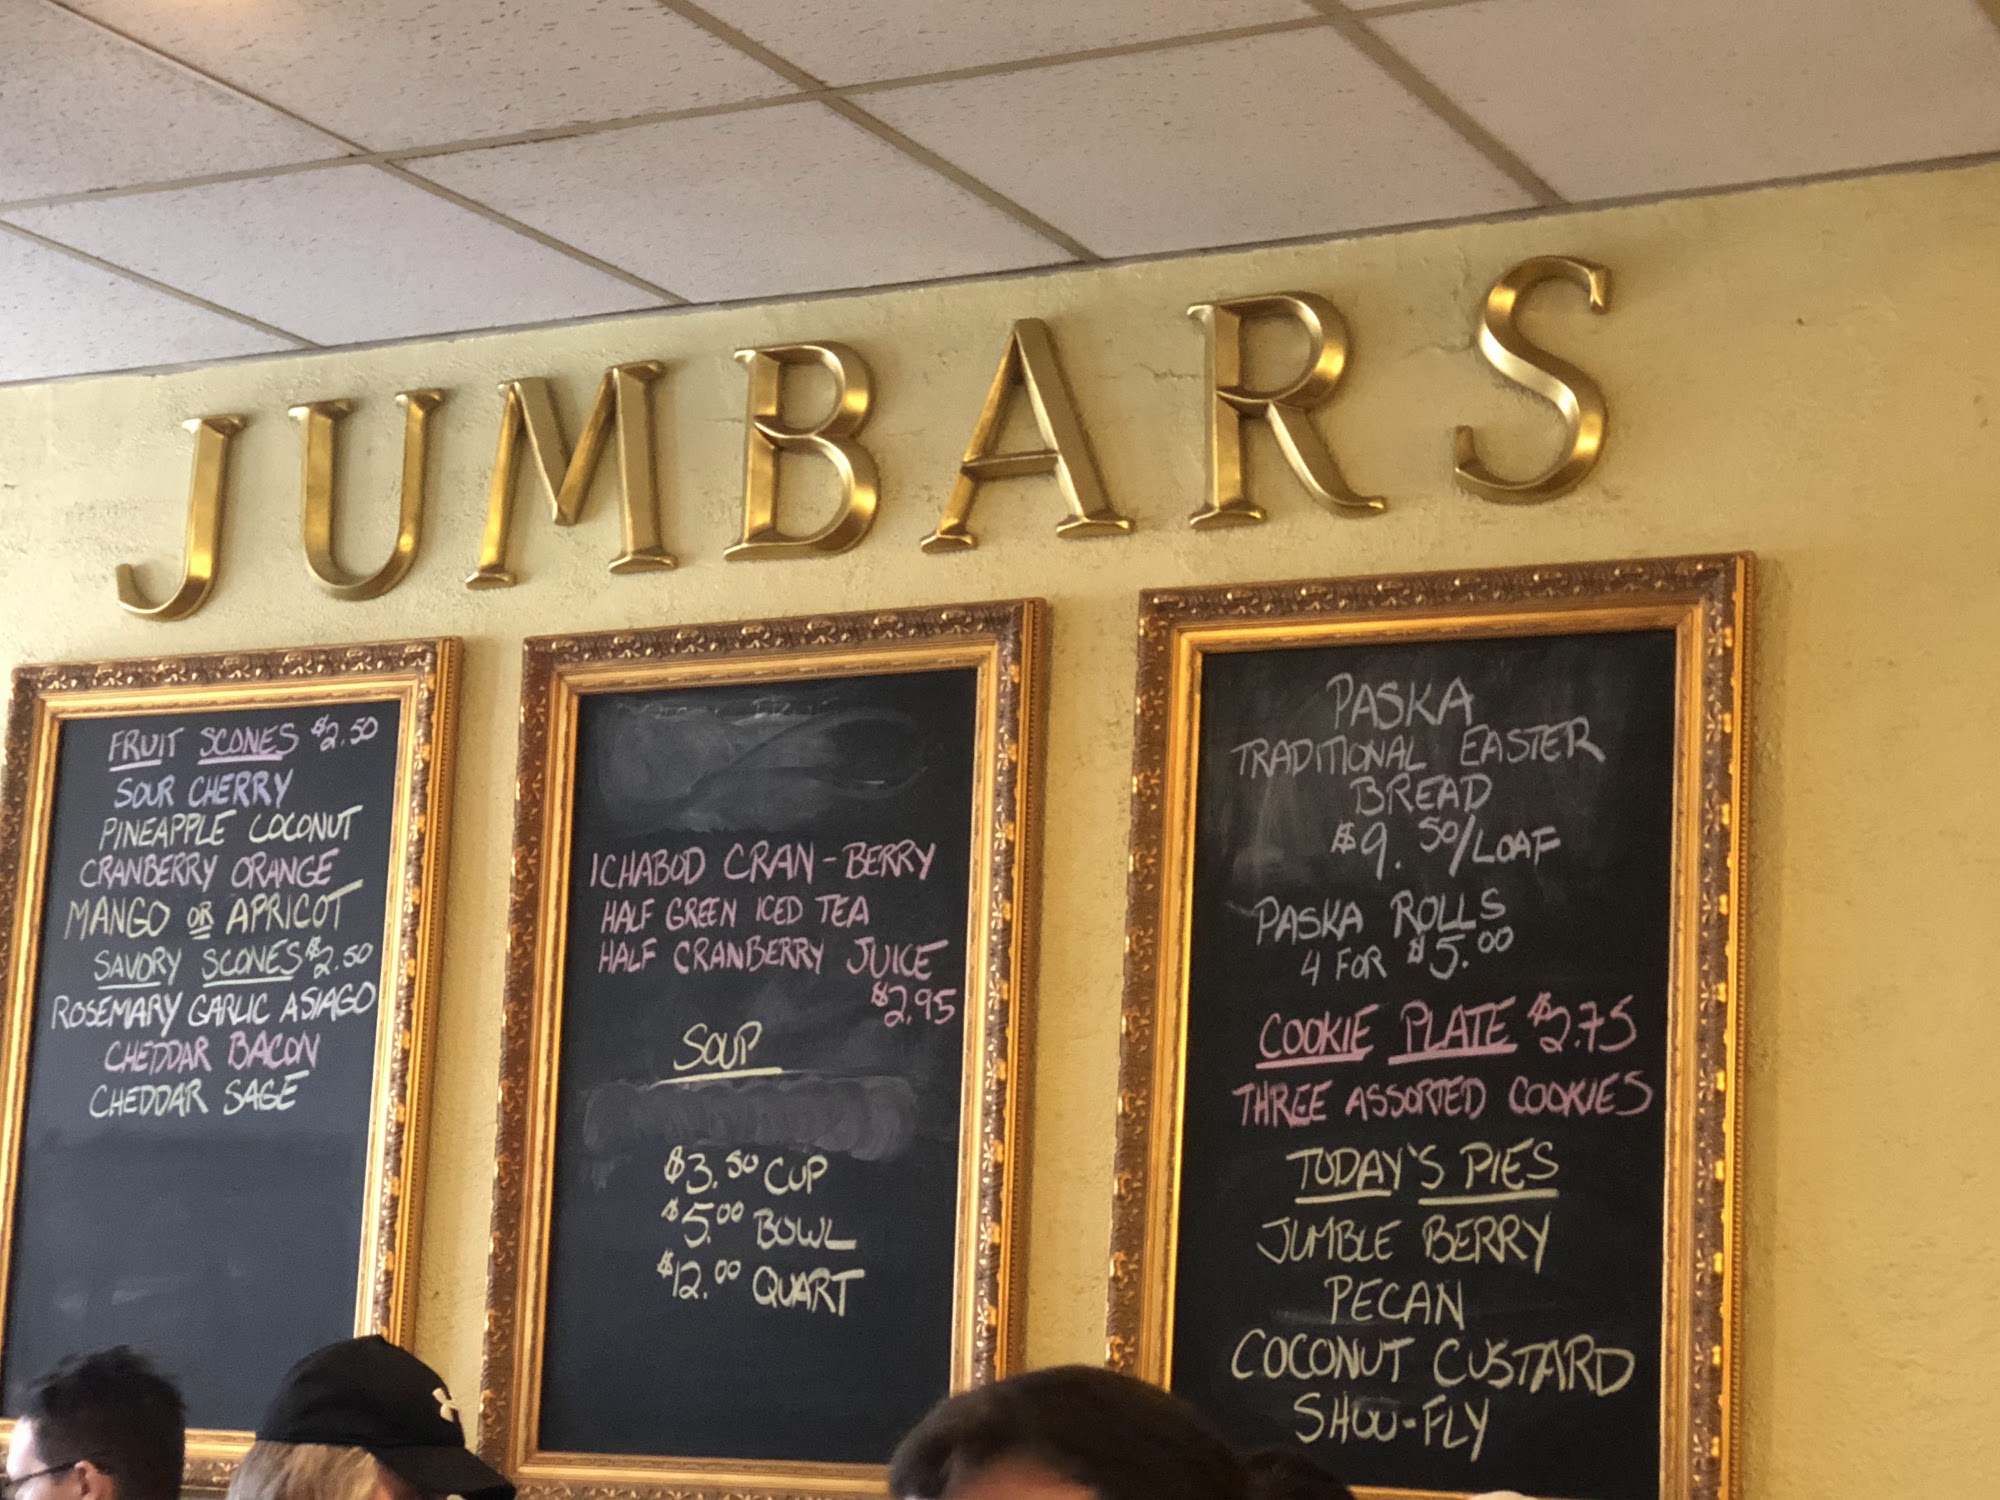 JUMBARS
FRUIT SCONES $2.50
SOUR CHERRY
PINEAPPLE COCONUT
CRANBERRY ORANGE
MANGO OR APRICOT
SAVORY SCONES $2.50
ROSEMARY GARLIC ASIAGO
CHEDDAR BACON
CHEDDAR SAGE
ICHABOD CRAN-BERRY
HALF GREEN ICED TEA
HALF CRANBERRY JUICE
$2.95
SOUP
$3.50 CUP
$5.00 BOWL
$12.00 QUART
PASKA
TRADITIONAL EASTER
BREAD
$9.50/LOAF
PASKA ROLLS
4 FOR $5.00
COOKIE PLATE $2.75
THREE ASSORTED COOKIES
TODAY'S PIES
JUMBLE BERRY
PECAN
COCONUT CUSTARD
SHOO-FLY